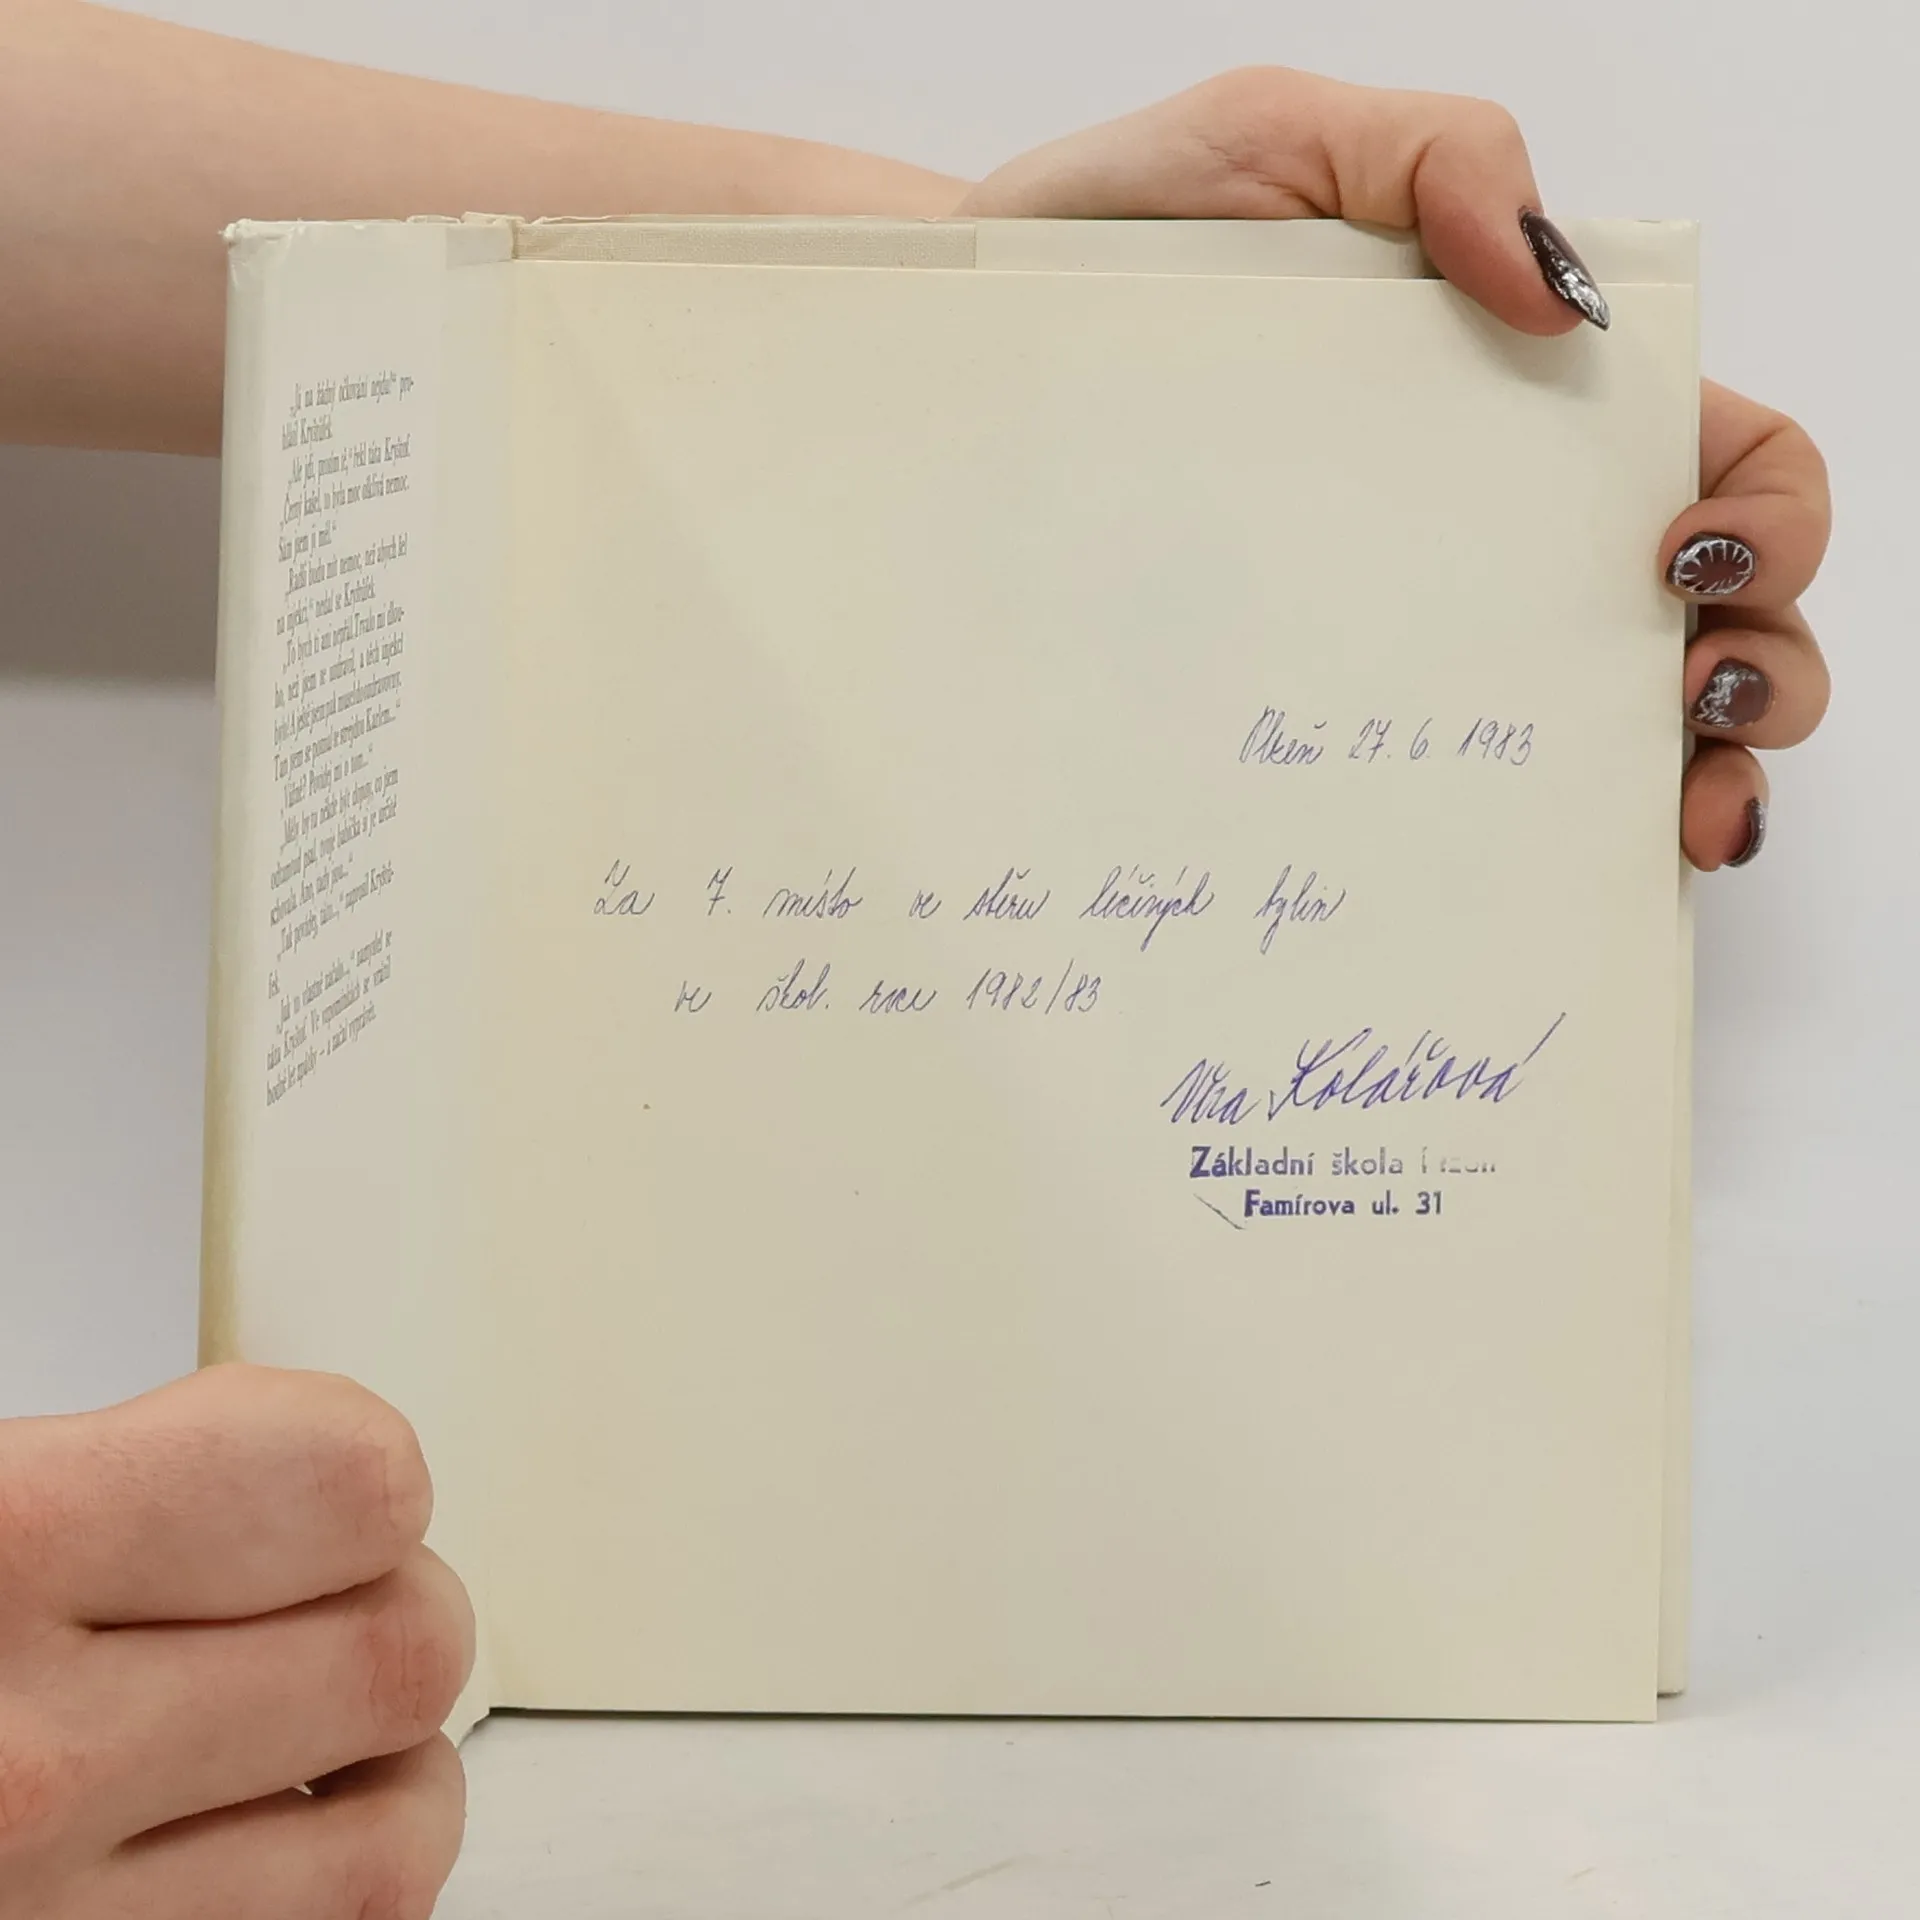 „Já na žádný očkování nejdu!“ pro-
hlásil Kryštůfek.
„Ale jdi, prosím tě,“ řekl táta Kryštof.
„Černý kašel, to byla moc ošklivá nemoc.
Sám jsem ji měl.“
„Radši budu mít nemoc, než abych šel
na injekci,“ nedal se Kryštůfek.
„To bych ti ani nepřál. Trvalo mi dlou-
ho, než jsem se uzdravil, a těch injekcí
bylo! A ještě jsem pak musel do ozdravovny.
Tam jsem se poznal se strejdou Karlem...“
„Vážně? Povídej mi o tom...“
„Měly by tu někde být dopisy, co jsem
odtamtud psal, tvoje babička si je určitě
schovala. Ano, tady jsou...“
„Tak povídej, táto...,“ naprosil Kryštů-
fek.
„Jak to vlastně začalo...,“ zamyslel se
táta Kryštof. Ve vzpomínkách se vrátil
hodně let zpátky – a začal vyprávět.
Plzeň 27. 6. 1983
Za 7. místo ve sběru léčivých bylin
ve škol. roce 1982/83
Kolářová
Základní škola
Famírova ul. 31